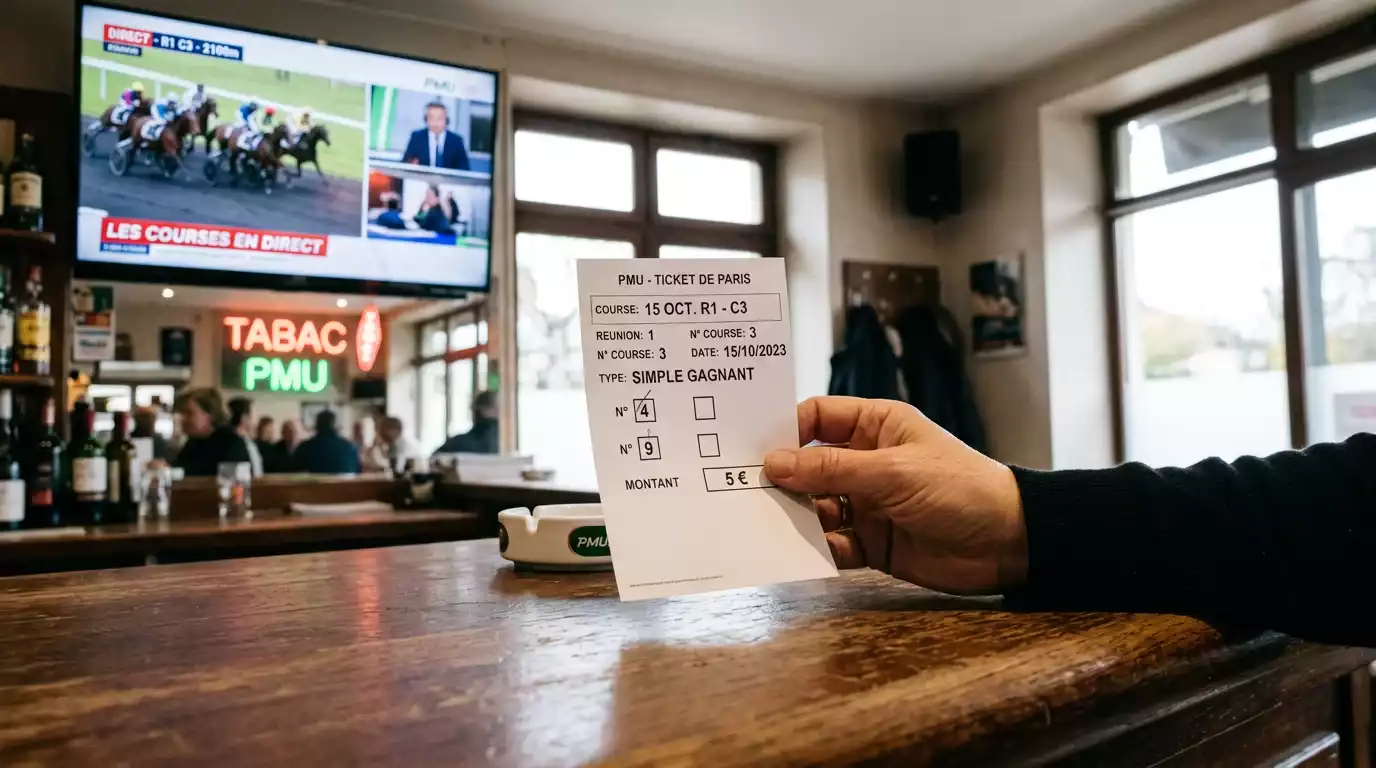 DIRECT - R1 C3 - 2100m
PMU
LES COURSES EN DIRECT
TABAC
PMU
PMU - TICKET DE PARIS
COURSE: 15 OCT. R1 - C3
REUNION: 1 N° COURSE: 3
N° COURSE: 3 DATE: 15/10/2023
TYPE: SIMPLE GAGNANT
N° 4
N° 9
MONTANT 5 €
PMU